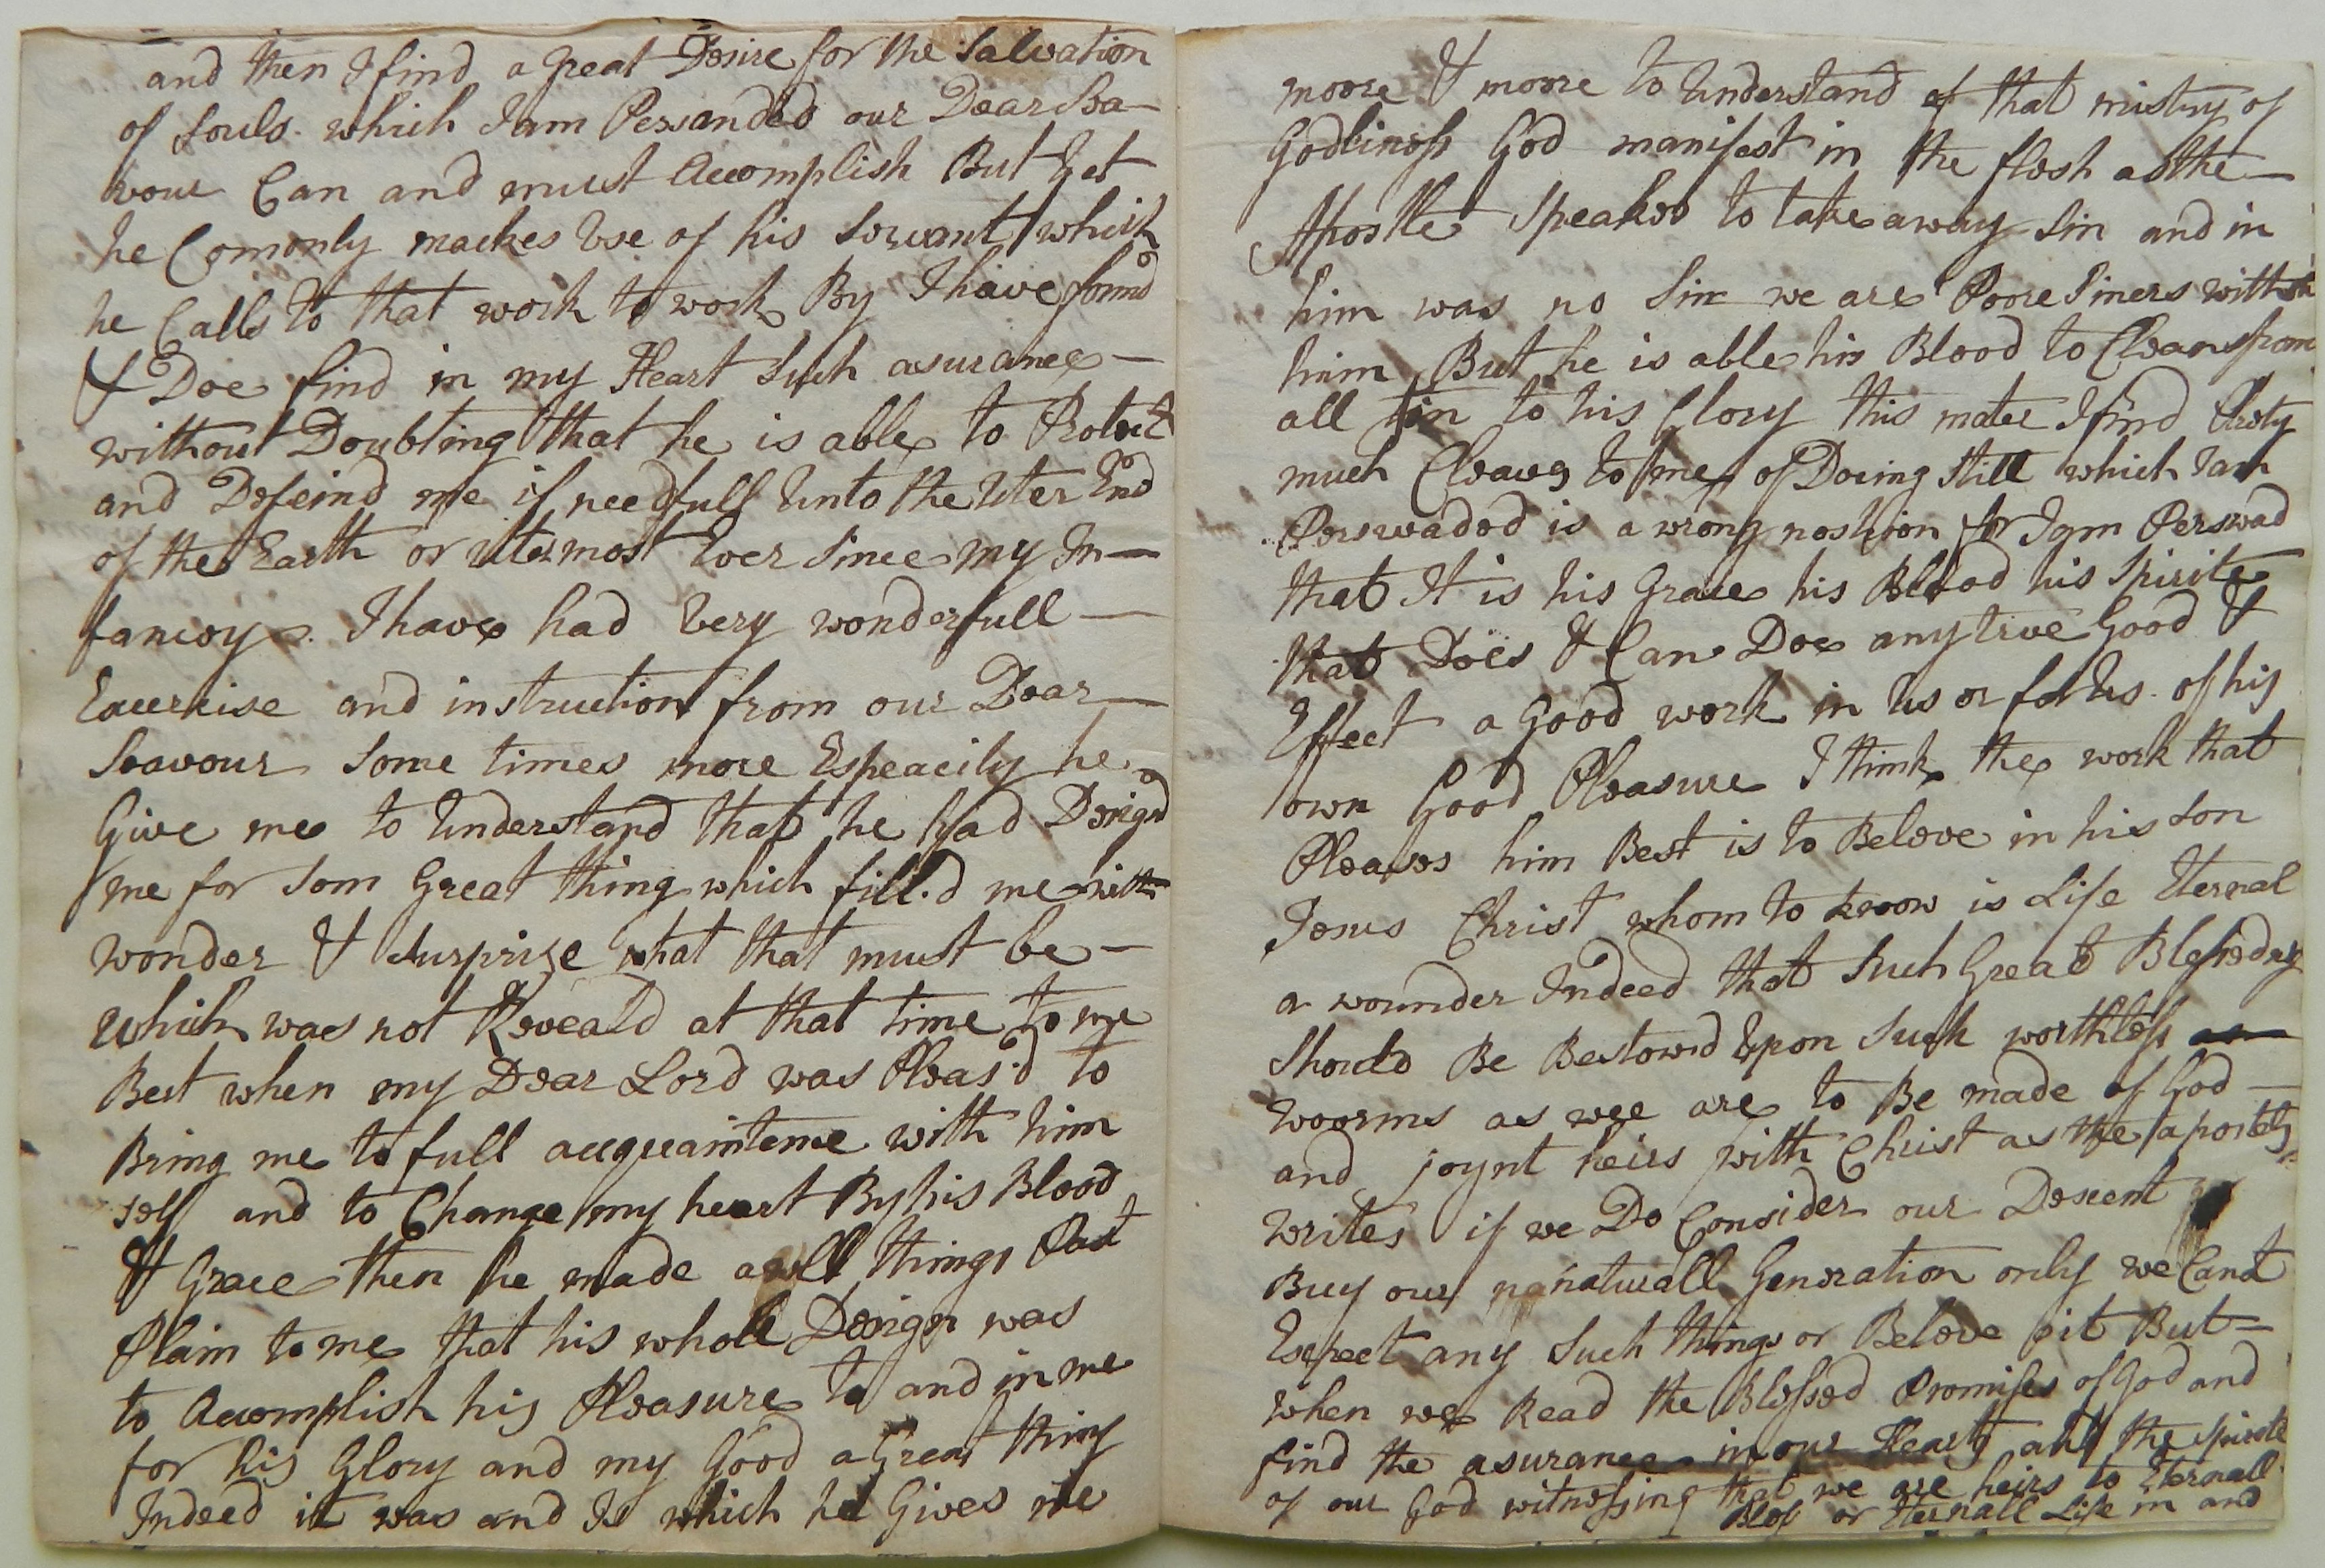 and then I find a great Desire for the Salvation
of Souls. which I am Perswanded our Dear Sea-
vour Can and must Acomplish But Yet
he Comonly mackes Use of his Servant which
he Calls to that work to work By I have found
& Doe find in my Heart Such asurance -
without Doubting that he is able to Protect
and Defeind me if needfull Unto the Uter End
of the Earth or Utermost Ever Since my In-
fancey. I have had Very wonderfull -
Exercise and instruction from our Dear -
Seavour Some times more Espeacily he
Give me to Understand that he had Desig'd
me for Som Great thing which fill.d me with
wonder & Surprize what that must be -
which was not Reveald at that time to me
Best when my Dear Lord was Pleas'd to
Bring me to full acquaintence with him
self and to Change my heart By his Blood
& Grace then he made all things Past
Plain to me that his whole Design was
to Acomplish his Pleasure to and in me
for his Glory and my Good a Great thing
Indeed it was and Is which he Gives me
moore & moore to Understand of that mistry of
Godliness God manifest in the flesh as the -
Apostle Speakes to take away Sin and in
him was no Sin we are Poore Siners without
him But he is able his Blood to Cleans from
all Sin to his Glory this mater I find
much Cleaves to me of Doeing Still which I am
Perswaded is a wrong noshion for I am Perswad
that It is his Grace his Blood his Spirite
that Does & Can Doe any true Good &
Effect a Good work in Us or for Us. of his
own Good Pleasure I think the work that
Pleases him Best is to Beleve in his Son
Jesus Christ whom to know is Life Eternal
a wounder Indeed that Such Great Blessedney
Should Be Bestow'd Upon Such worthless
woorms as wee are to Be made of God -
and joynt heirs with Christ as the apostels
writes if we Do Consider our Descent
Buy our nanaturall Generation only we Canot
Expect any Such things or Beleve it But -
when we Read the Blessed Promises of God and
find the asurance in our Hearts and the Spirite
of our God witnessing that we are heirs to Eternall
Bless or Eternall Life in and